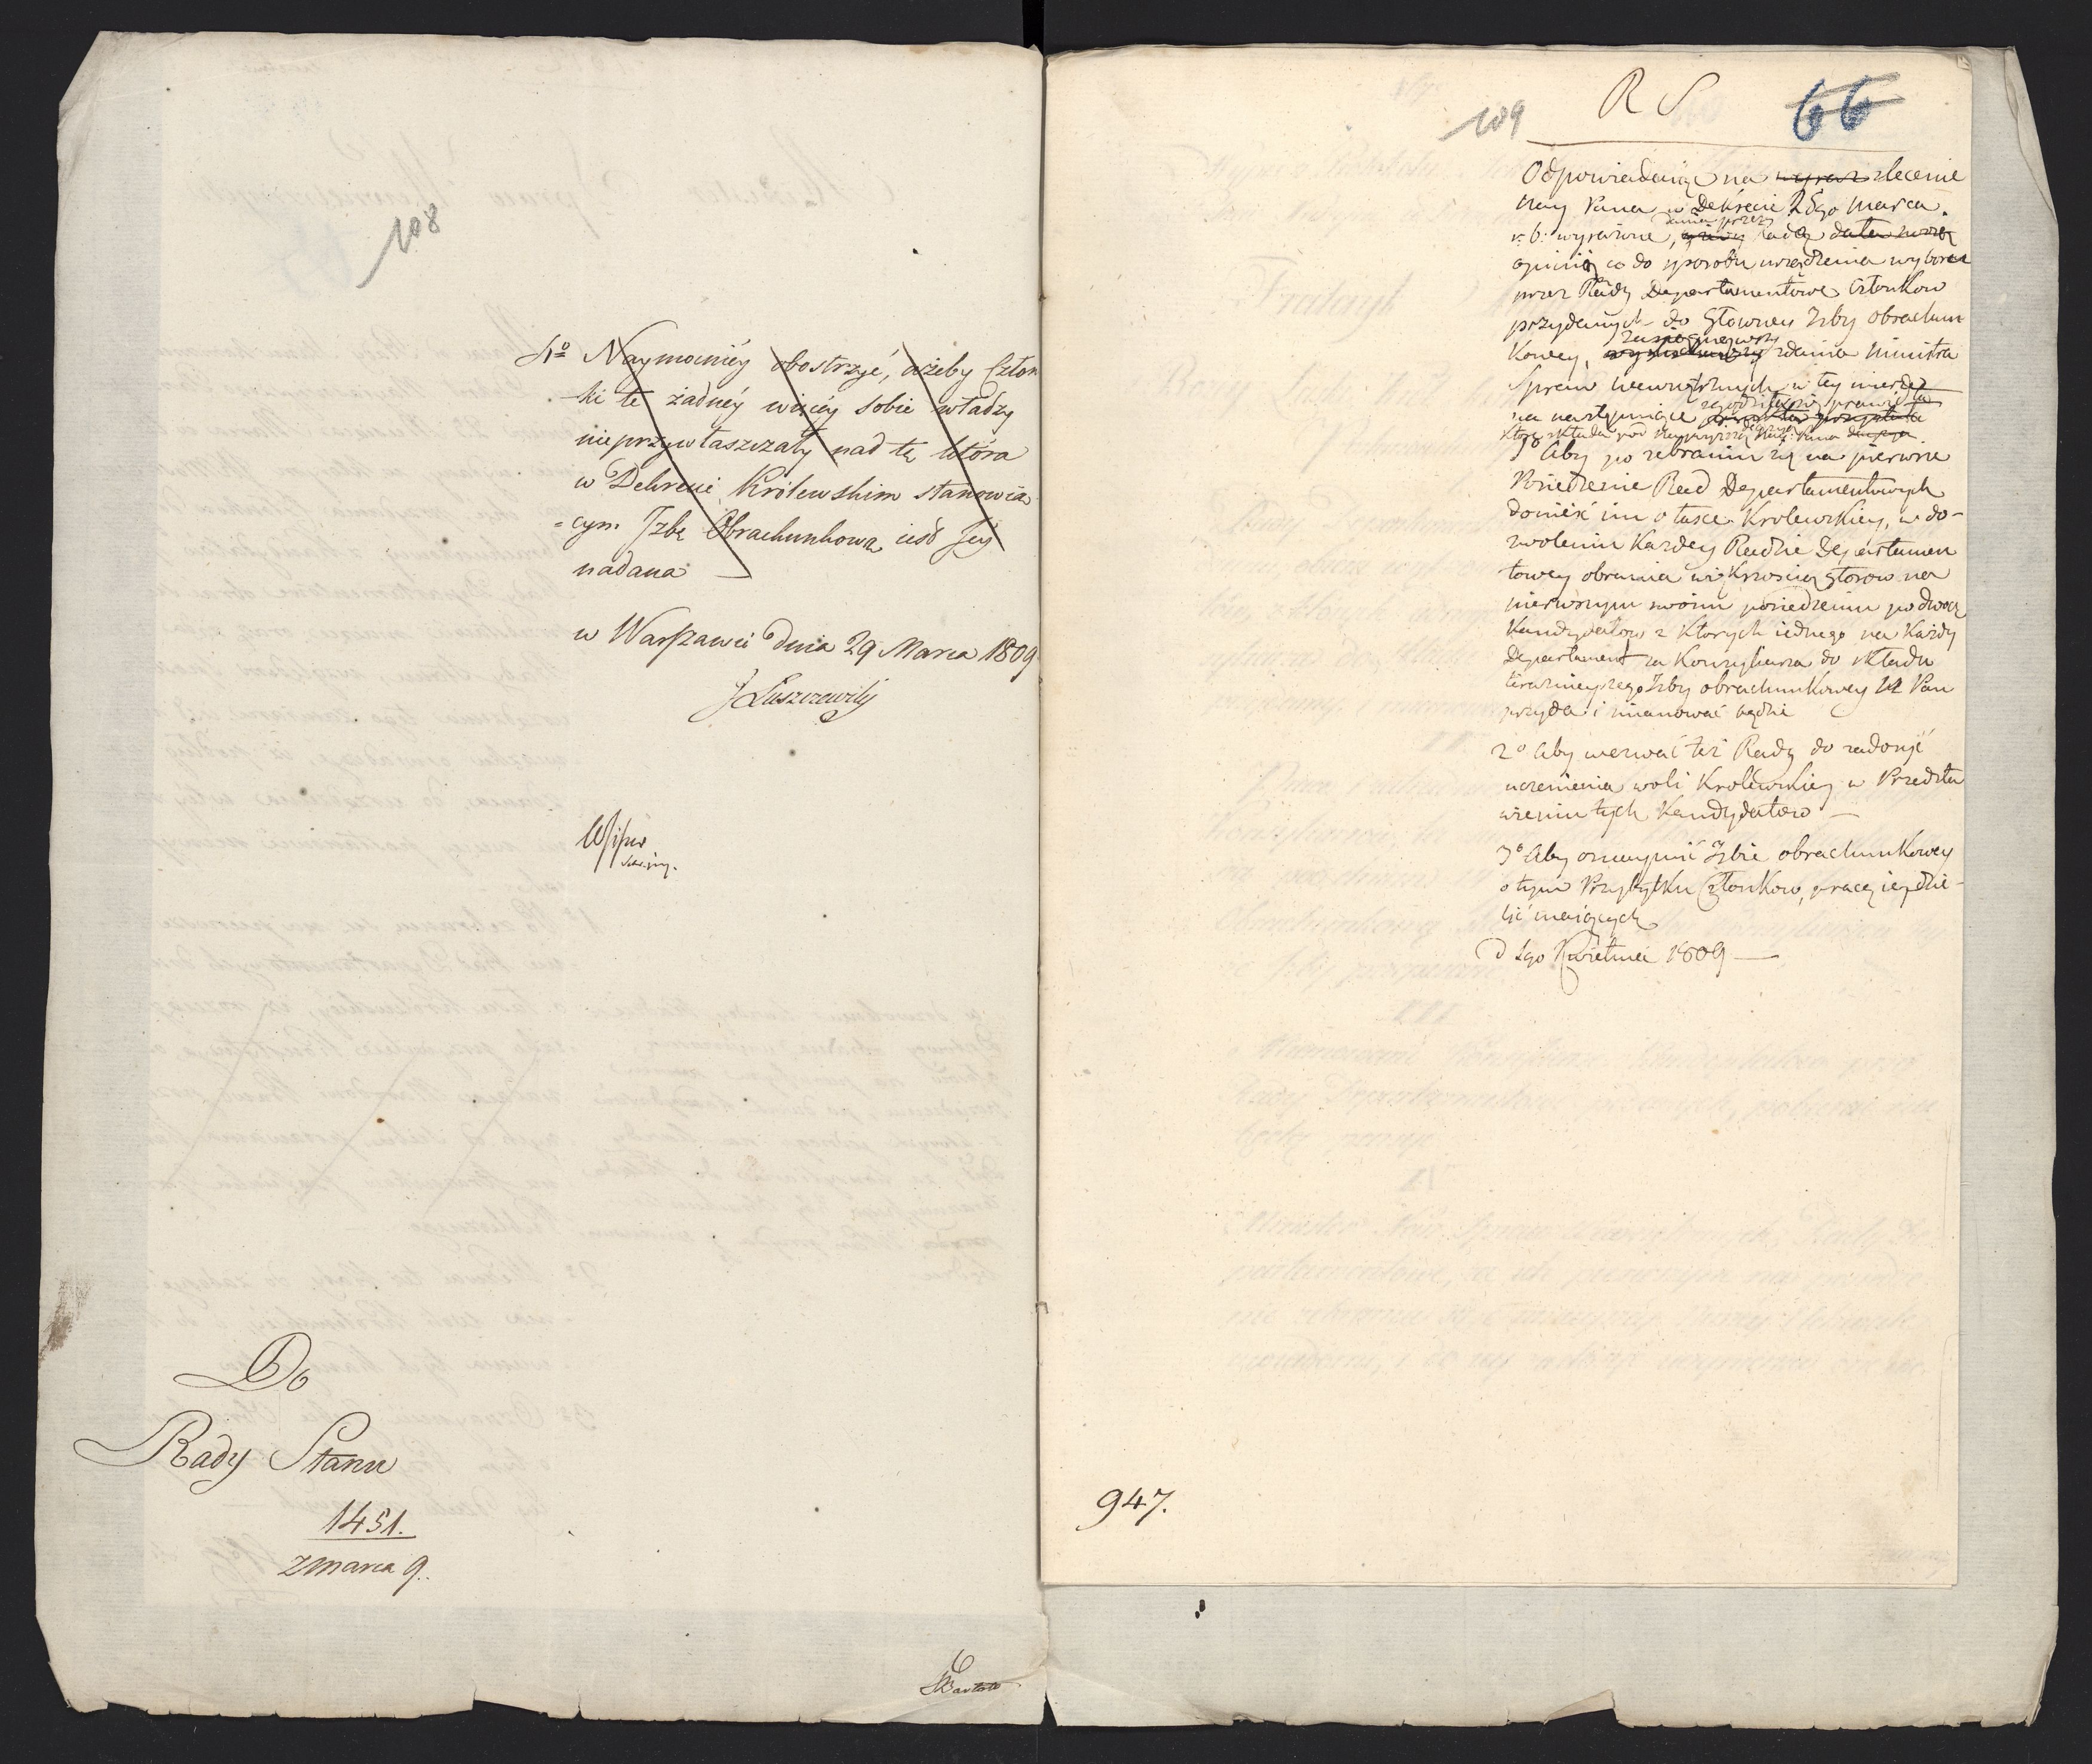 108
4º Naymocniéy obostrzyć, ażeby Człon
-ki te żadnéy więcéy sobie władzy
nieprzywłaszczały nad tę która
w Dekrecie Królewskim stanowią
=cym Jzbę Obrachunkową iest Jey
nadana
w Warszawie dnia 29 Marca 1809
JŁuszczewski
Do
Rady Stanu
1451.
z Marca 9.
6
109
R S
66
Odpowiadaiąc na wyraz zlecenie
Nay Pana w Dekrecie 25go Marca
r: b: wyrażone, Rada
opinią co do sposobu urządzenia wyboru
przez Rady Departamentowe Członkow
przydanych do Główney Izby obrachun
kowey, zdania Ministra
Spraw Wewnętrznych w tey mierze
na następuiące
1º Aby po zebraniu się na pierwsze
Posiedzenie Rad Departamentowych
donieść im o łasce Krolewskiey, w do-
zwoleniu Każdey Radzie Departamen
towey obrania większością głosow na
pierwszym swoim posiedzeniu po dwoch
Kandydatow z Ktorych iednego na Każdy
Departament za Konsyliarza do składu
teraznieyszego Izby obrachunkowey N Pan
przyda i mianować będzie
2º Aby wezwać też Rady do zadosyć
uczynienia woli Krolewskiey w Przedsta
wieniu tych Kandydatow —
3º Aby oznaymić Izbie obrachunkowey
o tym Przybytku Członkow, pracę iey dzie-
lić maiących
D 1go Kwietnia 1809 —
947.